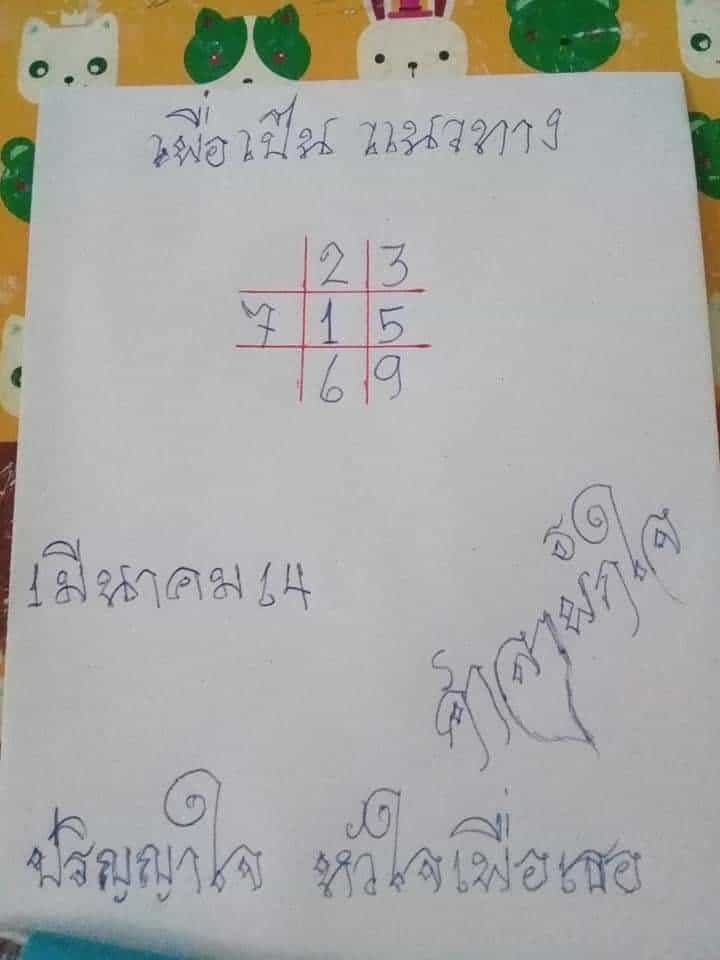 เพื่อเป็น แนวทาง
2 3
7 1 5
6 9
1 มีนาคม 64
ปริญญาใจ หัวใจเพื่อเธอ